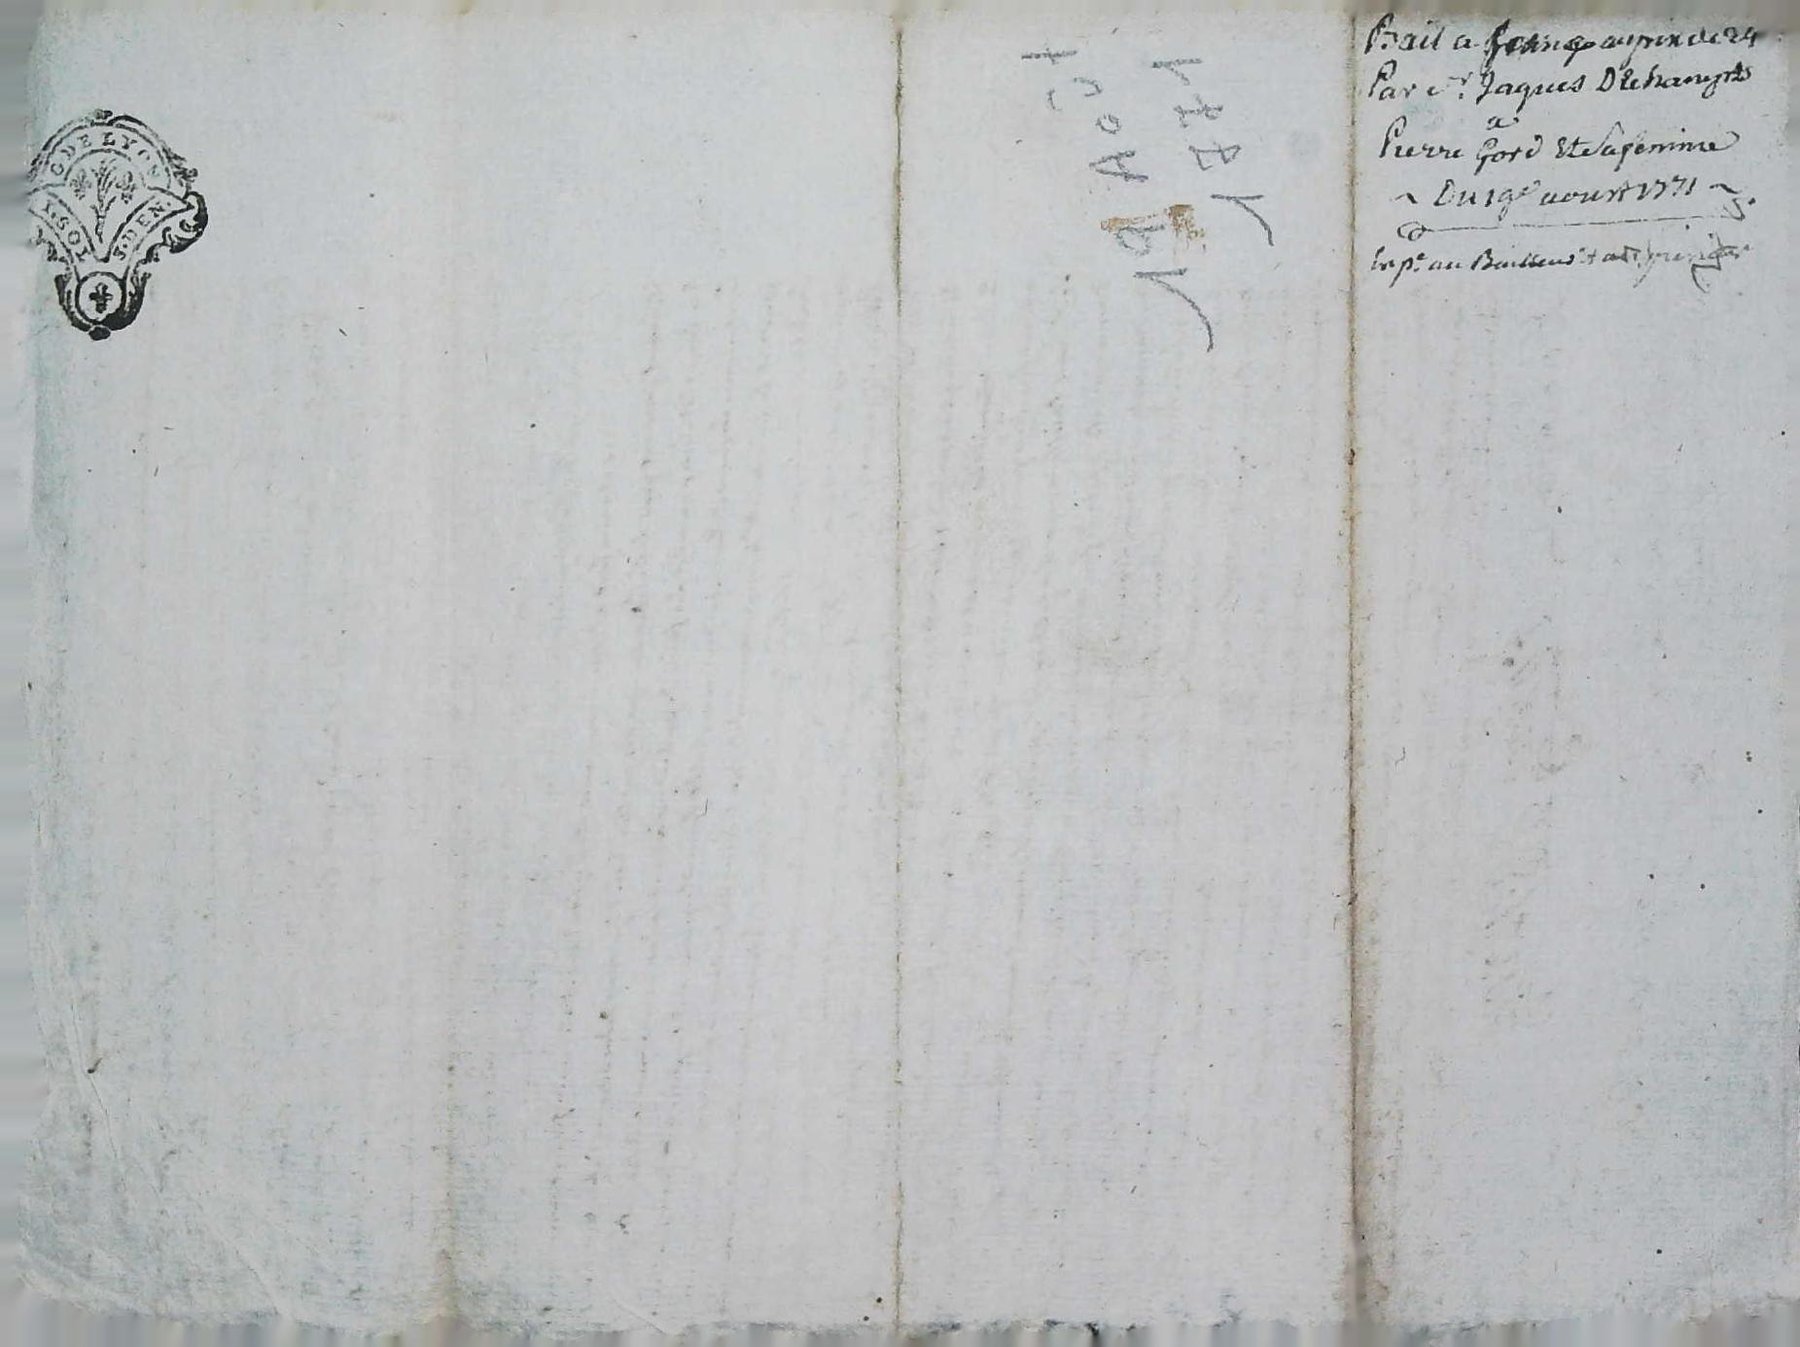 G DE LYON
1. SOL
3. DEN.
19 Août
1771
Bail a ferme au prix de 24
Par Sr. Jaques Dechamps
a
Pierre Gord Et Sa femme
~ Du 19e aoust 1771 ~
Exp.e au Bailleur